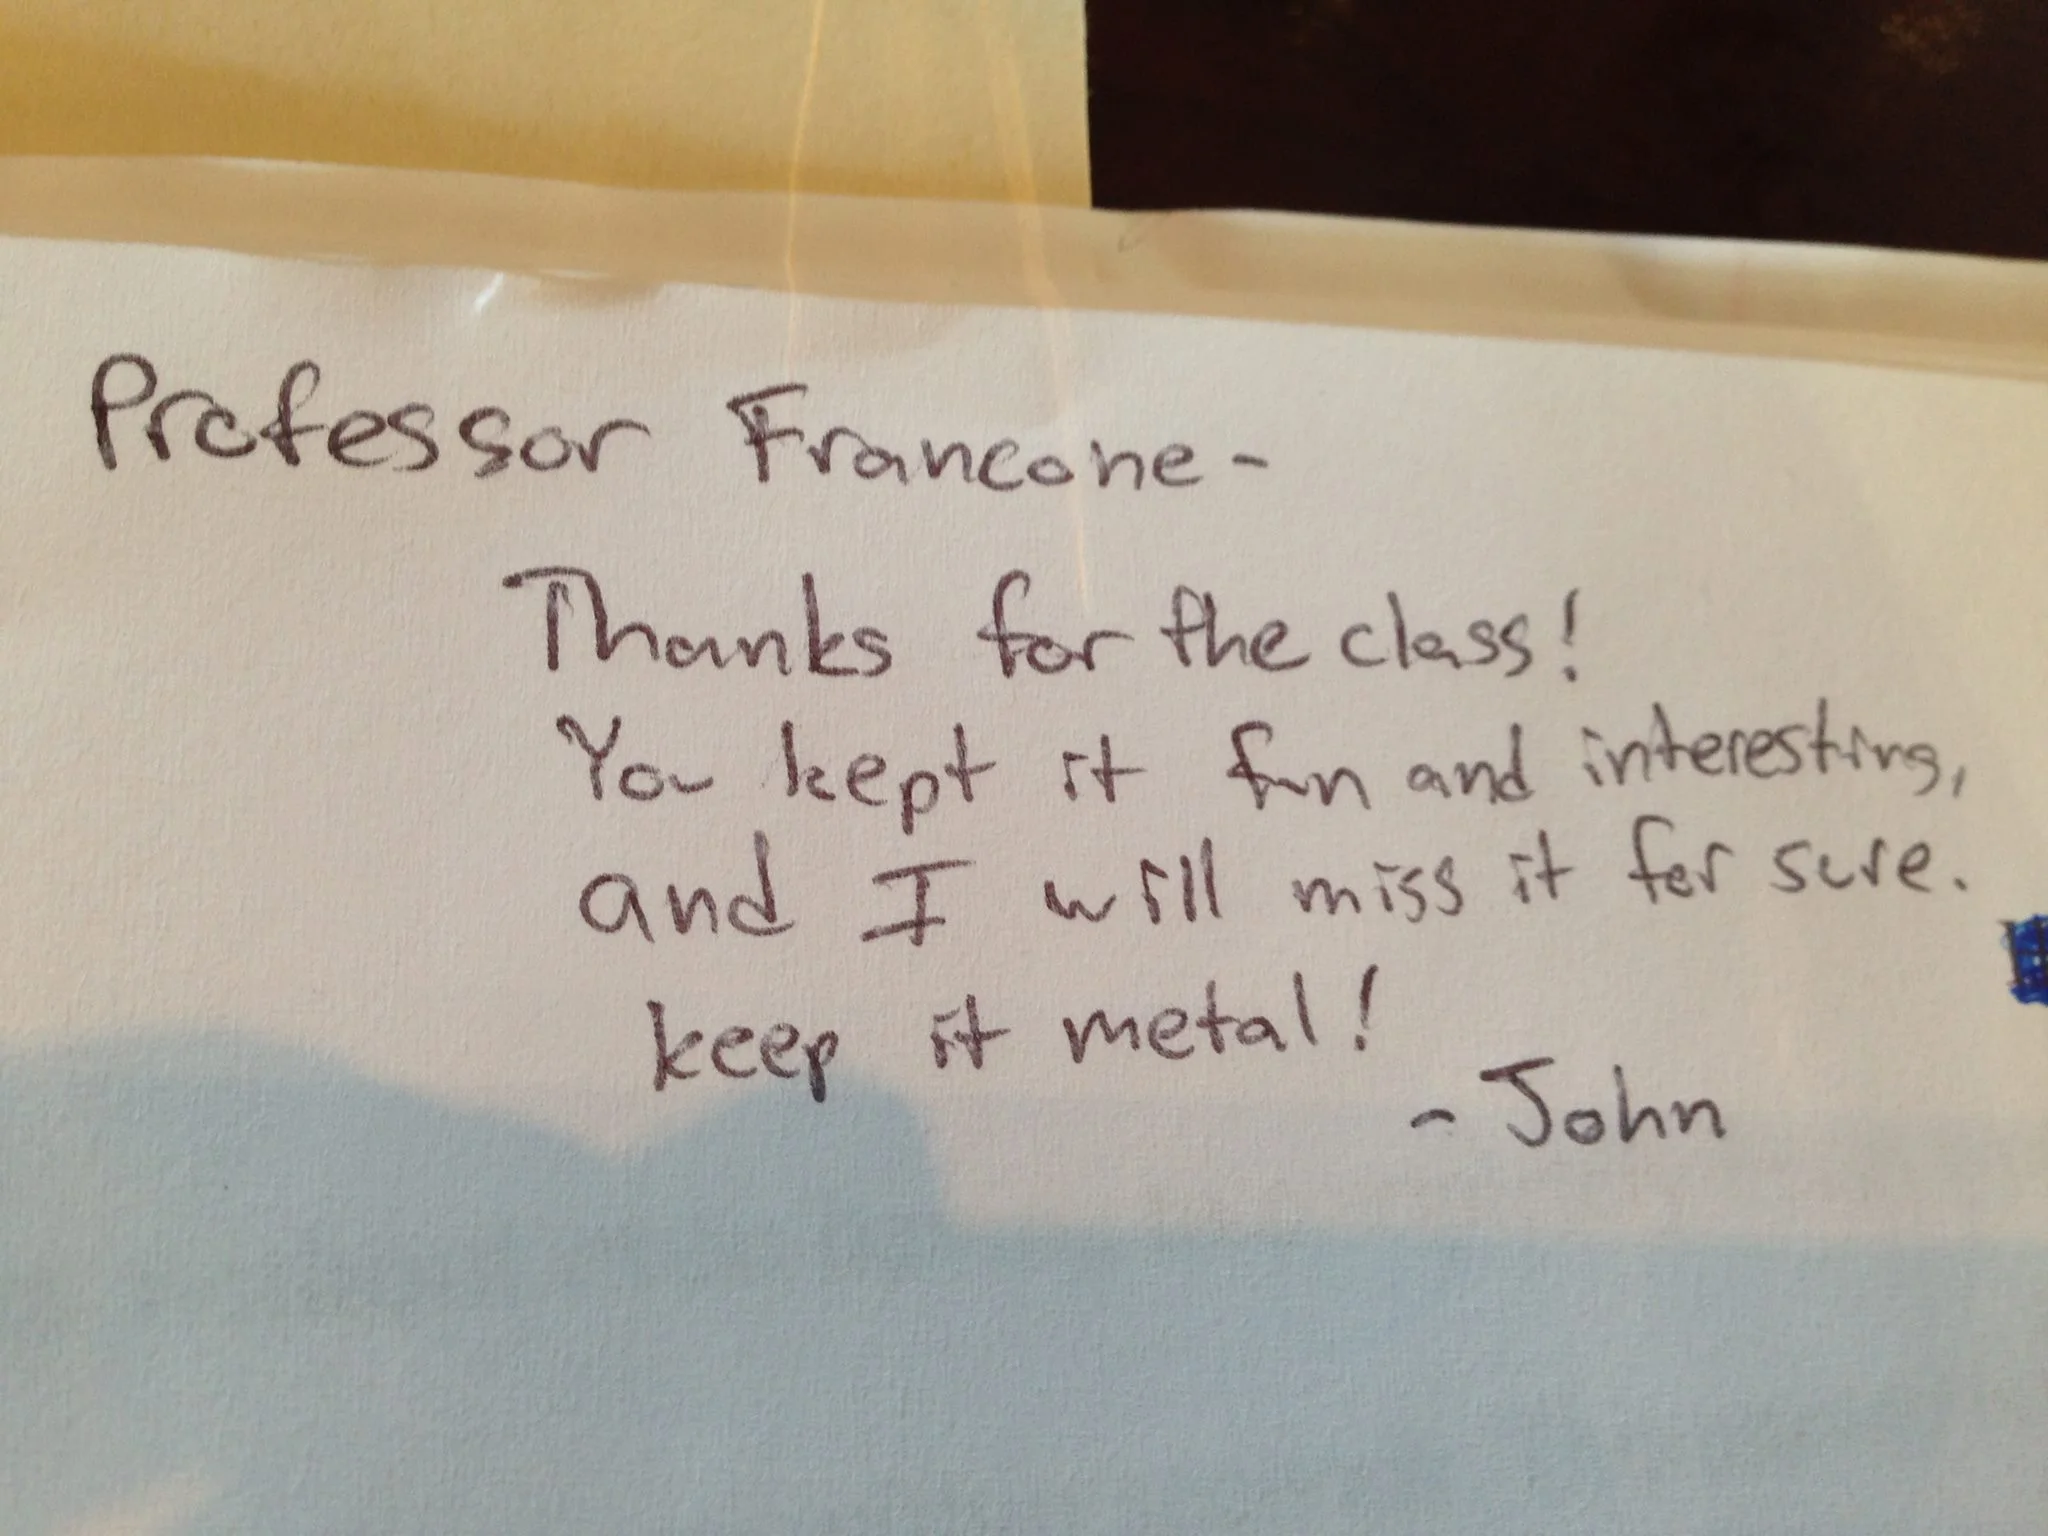 Professor Francone-
Thanks for the class!
You kept it fun and interesting,
and I will miss it for sure.
keep it metal!
- John